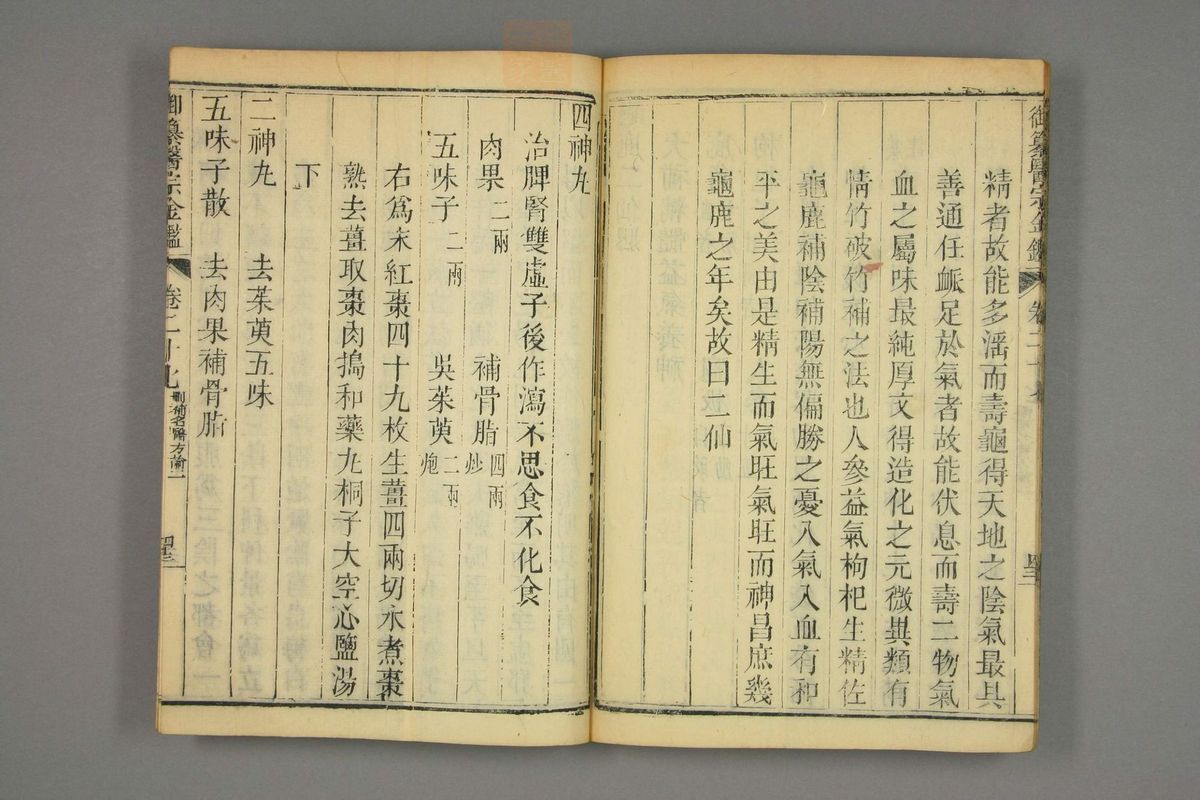 御纂醫宗金鑑 卷二十七
精者故能多淫而壽龜得天地之陰氣最具
善通任脈足於氣者故能伏息而壽二物氣
血之屬味最純厚又得造化之元微異類有
情竹破竹補之法也人參益氣枸杞生精佐
龜鹿補陰補陽無偏勝之憂入氣入血有和
平之美由是精生而氣旺氣旺而神昌庶幾
龜鹿之年矣故曰二仙
四神丸
治脾腎雙虛子後作瀉不思食不化食
肉果 二兩 補骨脂 四兩炒
五味子 二兩 吳茱萸 二兩炮
右為末紅棗四十九枚生薑四兩切水煮棗
熟去薑取棗肉搗和藥丸桐子大空心鹽湯
下
二神丸 去茱萸五味
五味子散 去肉果補骨脂
御纂醫宗金鑑 卷二十七 刪補名醫方論二